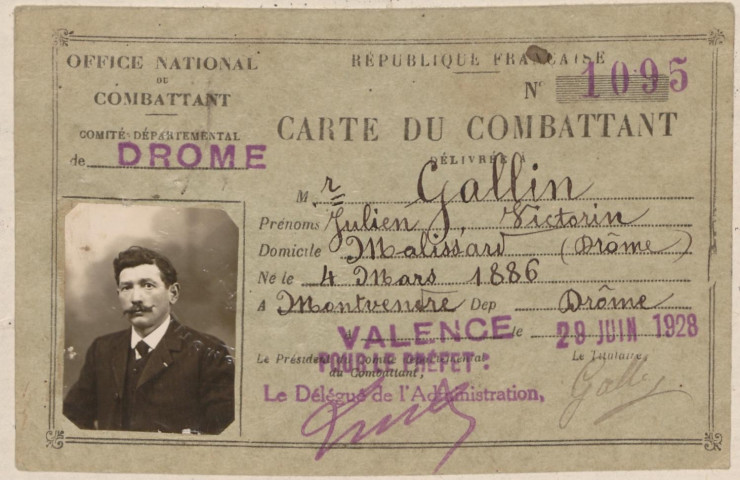 OFFICE NATIONAL
DU
COMBATTANT
COMITÉ DÉPARTEMENTAL
de DROME
RÉPUBLIQUE FRANÇAISE
N° 1095
CARTE DU COMBATTANT
DÉLIVRÉE A
M r Gallin
Prénoms Julien, Victorin
Domicile Malissard (Drôme)
Né le 4 Mars 1886
A Montvendre Dep Drôme
VALENCE le 29 JUIN 1928
Le Président du Comité départemental
du Combattant,
POUR LE PRÉFET:
Le Délégué de l'Administration,
Le Titulaire,